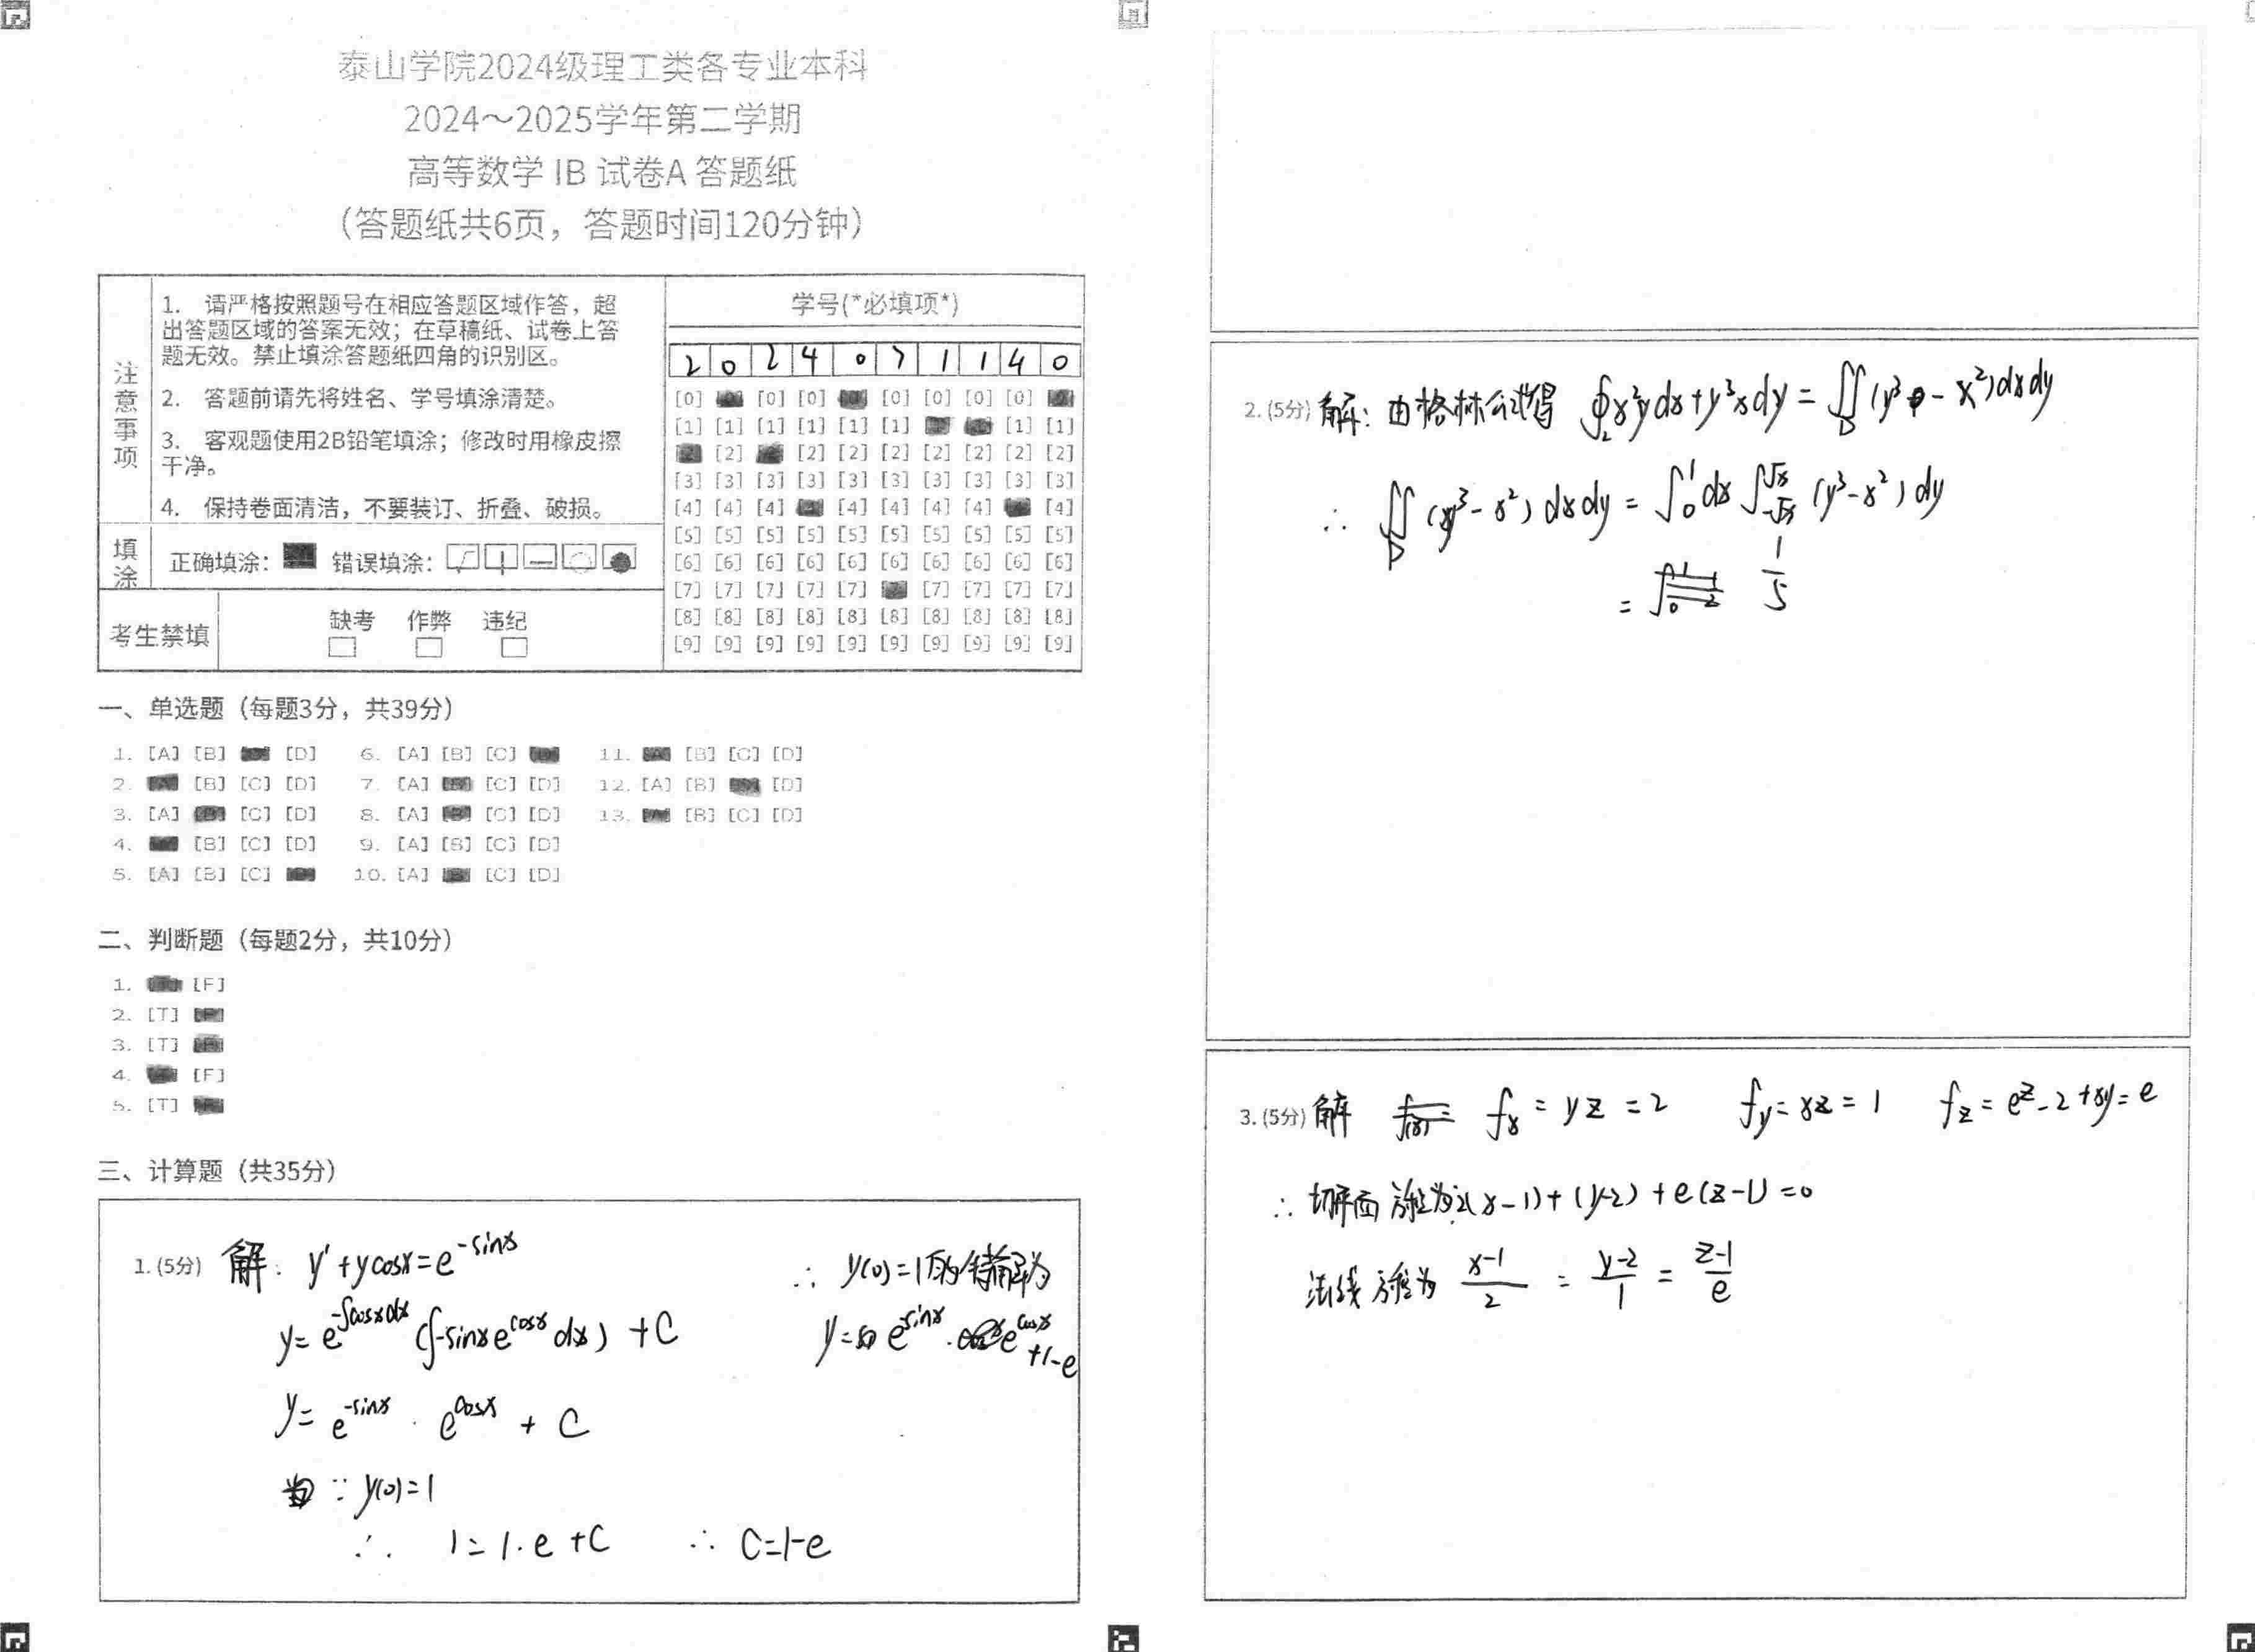 泰山学院2024级理工类各专业本科
2024～2025学年第二学期
高等数学 IB 试卷A 答题纸
（答题纸共6页，答题时间120分钟）
注意事项
1. 请严格按照题号在相应答题区域作答，超
出答题区域的答案无效；在草稿纸、试卷上答
题无效。禁止填涂答题纸四角的识别区。
2. 答题前请先将姓名、学号填涂清楚。
3. 客观题使用2B铅笔填涂；修改时用橡皮擦
干净。
4. 保持卷面清洁，不要装订、折叠、破损。
填涂
正确填涂： 错误填涂：
考生禁填
缺考 作弊 违纪
学号(*必填项*)
2 0 2 4 0 7 1 1 4 0
[0] [0] [0] [0] [0] [0] [0]
[1] [1] [1] [1] [1] [1] [1] [1]
[2] [2] [2] [2] [2] [2] [2] [2]
[3] [3] [3] [3] [3] [3] [3] [3] [3] [3]
[4] [4] [4] [4] [4] [4] [4] [4]
[5] [5] [5] [5] [5] [5] [5] [5] [5] [5]
[6] [6] [6] [6] [6] [6] [6] [6] [6] [6]
[7] [7] [7] [7] [7] [7] [7] [7] [7]
[8] [8] [8] [8] [8] [8] [8] [8] [8] [8]
[9] [9] [9] [9] [9] [9] [9] [9] [9] [9]
一、单选题（每题3分，共39分）
1. [A] [B] [D] 6. [A] [B] [C] 11. [B] [C] [D]
2. [B] [C] [D] 7. [A] [C] [D] 12. [A] [B] [D]
3. [A] [C] [D] 8. [A] [C] [D] 13. [B] [C] [D]
4. [B] [C] [D] 9. [A] [B] [C] [D]
5. [A] [B] [C] 10. [A] [C] [D]
二、判断题（每题2分，共10分）
1. [F]
2. [T]
3. [T]
4. [F]
5. [T]
三、计算题（共35分）
1. (5分) 解: y'+ycosx=e^{-sinx}
y=e^{-∫cosxdx} (∫-sinxe^{cosx}dx) +C
y= e^{-sinx} · e^{cosx} + C
∵ y(0)=1
∴ 1=1·e+C ∴ C=1-e
∴ y(0)=1的特解为
y= e^{-sinx} · e^{cosx} +1-e
2. (5分) 解: 由格林公式得 ∮_L x²ydx+y³xdy=∬_D (y³-x²)dxdy
∴ ∬_D (y³-x²)dxdy = ∫_0^1 dx ∫_{-√x}^{√x} (y³-x²)dy
= 1/5
3. (5分) 解 f_x = yz = 2 f_y=xz=1 f_z=e^z-2+xy=e
∴ 切平面方程为2(x-1)+(y-2)+e(z-1)=0
法线方程为 (x-1)/2 = (y-2)/1 = (z-1)/e